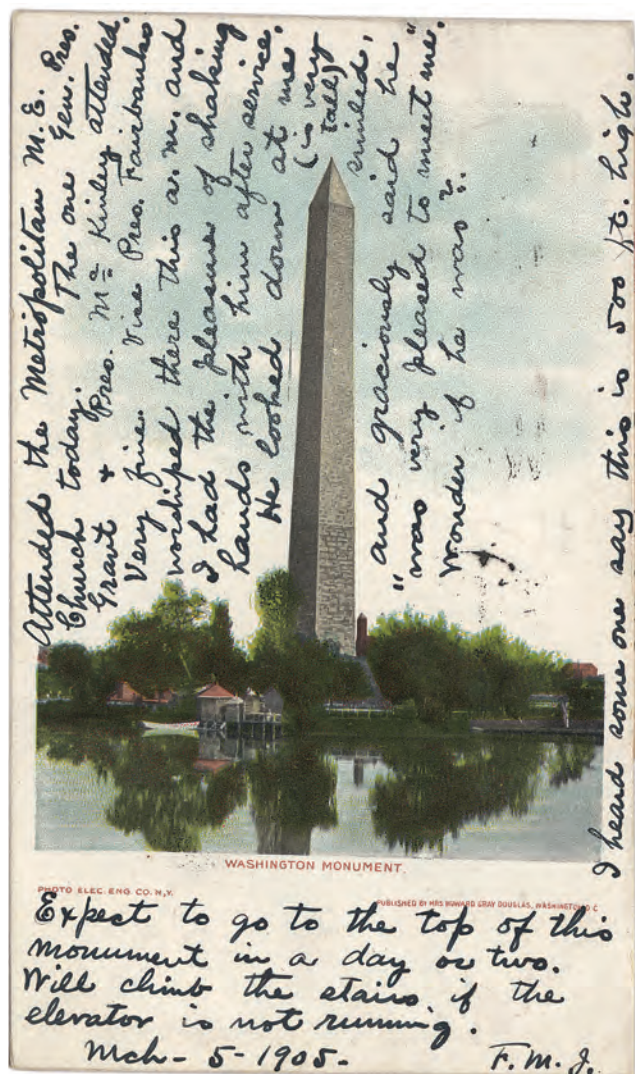 Attended the Metropolitan M. E.
Church today. The one Gen. Pres.
Grant & Pres. Mc Kinley attended.
Very fine. Vice Pres. Fairbanks
worshiped there this a.m. and
I had the pleasure of shaking
hands with him after service.
He looked down at me
(is very
tall)
smiled,
and graciously said he
"was very pleased to meet me."
Wonder if he was?
I heard some one say this is 500 ft. high.
WASHINGTON MONUMENT.
PHOTO ELEC. ENG. CO. N.Y.
PUBLISHED BY MRS HOWARD GRAY DOUGLAS, WASHINGTON D C
Expect to go to the top of this
monument in a day or two.
Will climb the stairs if the
elevator is not running.
Mch - 5 - 1905 -
F. M. J.